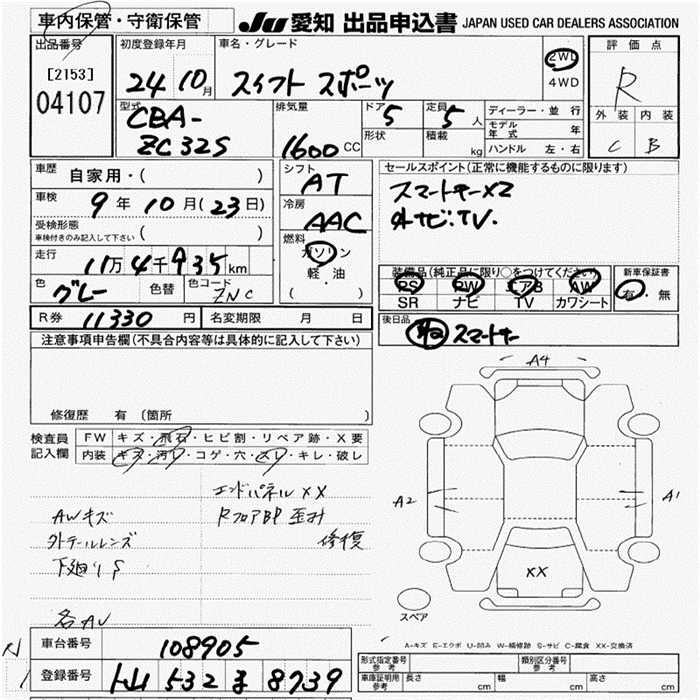 車内保管・守衛保管
JU 愛知 出品申込書 JAPAN USED CAR DEALERS ASSOCIATION
出品番号
[2153]
04107
初度登録年月
24年10月
車名・グレード
スイフト スポーツ
2WD
4WD
評価点
R
外装 内装
C B
型式
CBA-
ZC32S
排気量
1600 CC
ドア 5
形状
定員 5 人
積載 kg
ディーラー・並行
モデル年式 年
ハンドル 左・右
車歴
自家用・( )
車検
9年10月(23日)
受検形態
車検付きのみ記入して下さい ( )
走行
11万4千935km
色 グレー 色替 色コード ZNC
シフト
AT
冷房
AAC
燃料
ガソリン
軽・油
( )
セールスポイント(正常に機能するものに限ります)
スマートキーX2
外ナビ.TV.
装備品(純正品に限り○をつけてください)
PS PW エアB AW
SR ナビ TV カワシート
新車保証書
有・無
R券 11330円 名変期限 月 日
後日品
スマートキー
注意事項申告欄(不具合内容等は具体的に記入して下さい)
修復歴 有 (箇所 )
検査員記入欄
FW キズ・飛石・ヒビ割・リペア跡・X要
内装 キズ・汚レ・コゲ・穴・スレ・キレ・破レ
エンドパネルXX
AWキズ RフロアBP歪み
外テールレンズ 修復
下廻りS
各AU
A4
A2
A1
XX
スペア
A-キズ E-エクボ U-凹み W-補修跡 S-サビ C-腐食 XX-交換済
車台番号 108905
登録番号 532 8739
形式指定番号 参考
類別区分番号 参考
車庫証明用 参考 長さ cm 幅 cm 高さ cm